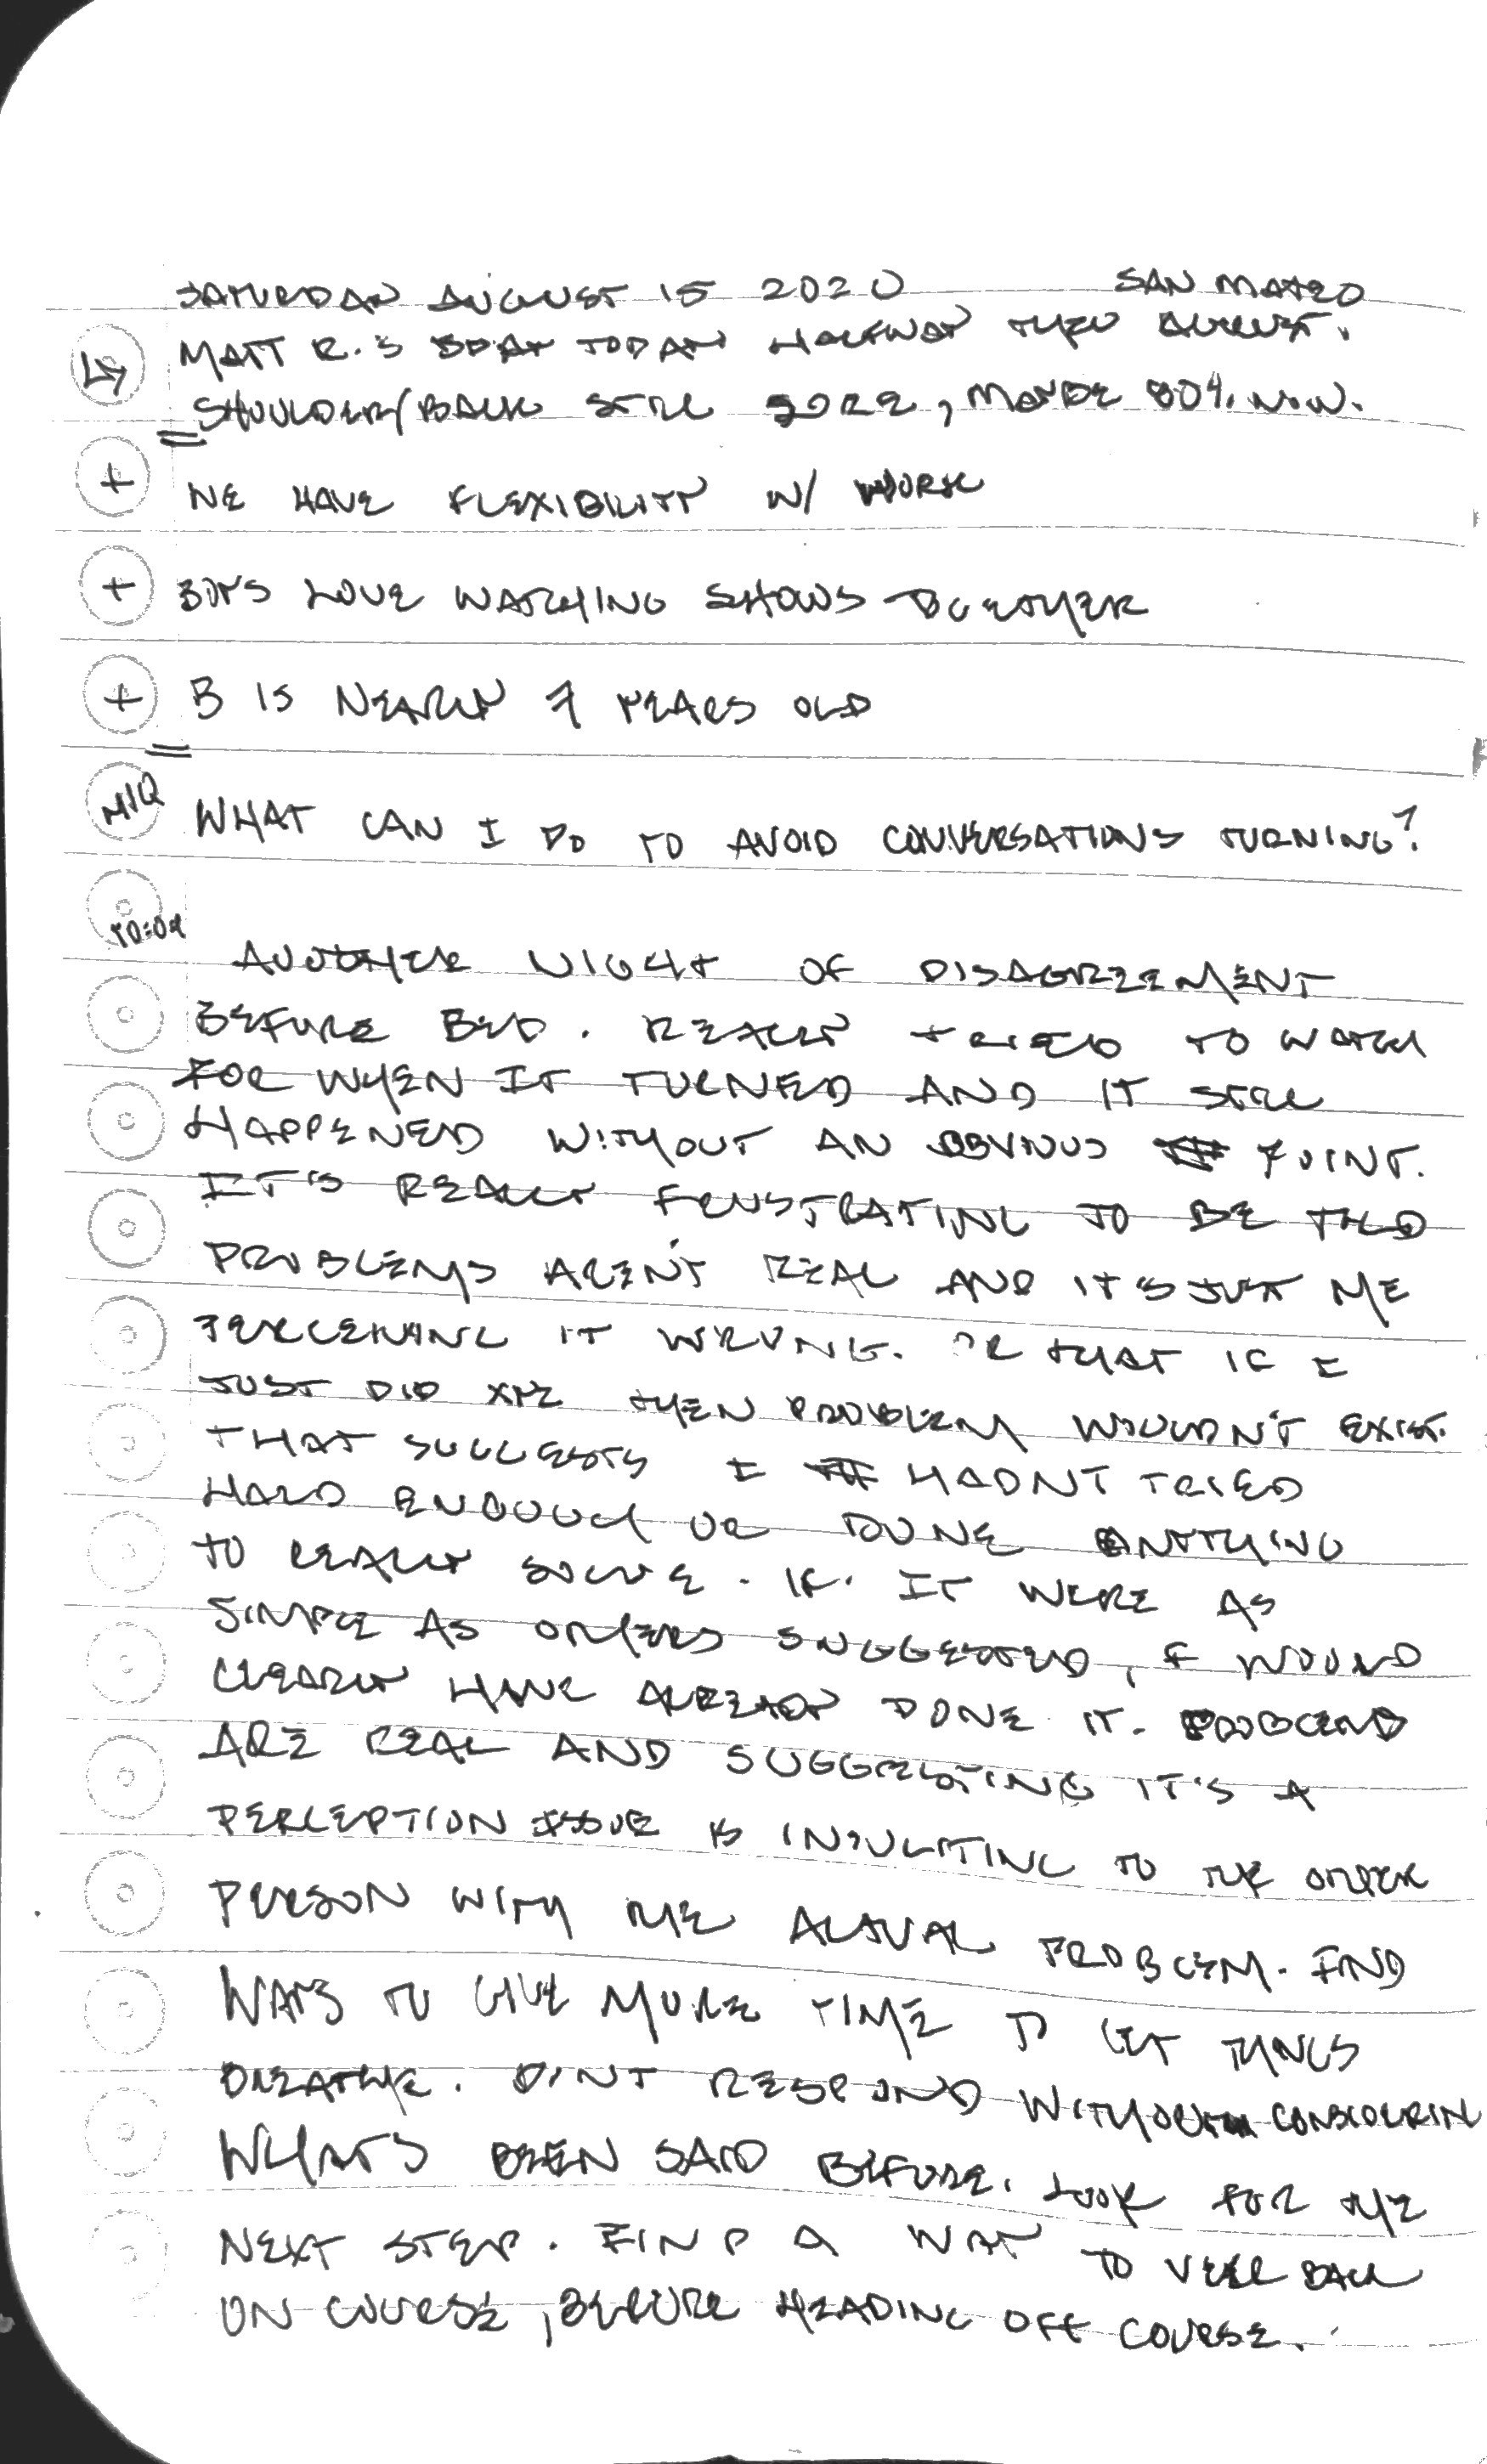 SATURDAY AUGUST 15 2020 SAN MATEO
MATT R.'S BDAY TODAY HALFWAY THRU AUGUST.
SHOULDER/BACK STILL SORE, MAYBE 80% NOW.
+ WE HAVE FLEXIBILITY W/ WORK
+ BOYS LOVE WATCHING SHOWS TOGETHER
+ B IS NEARLY 7 YEARS OLD
MIQ WHAT CAN I DO TO AVOID CONVERSATIONS TURNING?
10:09
ANOTHER NIGHT OF DISAGREEMENT
BEFORE BED. REALLY TRIED TO WATCH
FOR WHEN IT TURNED AND IT STILL
HAPPENED WITHOUT AN OBVIOUS POINT.
IT'S REALLY FRUSTRATING TO BE TOLD
PROBLEMS AREN'T REAL AND IT'S JUST ME
PERCEIVING IT WRONG. OR THAT IF I
JUST DID XYZ THEN PROBLEM WOULDN'T EXIST.
THAT SUGGESTS I HADN'T TRIED
HARD ENOUGH OR DONE ANYTHING
TO REALLY SOLVE. IF IT WERE AS
SIMPLE AS OTHERS SUGGESTED, I WOULD
CLEARLY HAVE ALREADY DONE IT. PROBLEMS
ARE REAL AND SUGGESTING IT'S A
PERCEPTION ISSUE IS INSULTING TO THE OTHER
PERSON WITH THE ACTUAL PROBLEM. FIND
WAYS TO GIVE MORE TIME TO LET THINGS
BREATHE. DON'T RESPOND WITHOUT CONSIDERIN
WHAT'S BEEN SAID BEFORE. LOOK FOR THE
NEXT STEP. FIND A WAY TO VEER BACK
ON COURSE, BEFORE HEADING OFF COURSE.